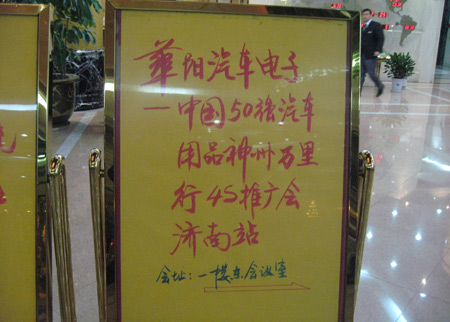 華阳汽车电子
—中国50强汽车
用品神州万里
行4S推广会
济南站
会址：一楼东会议室